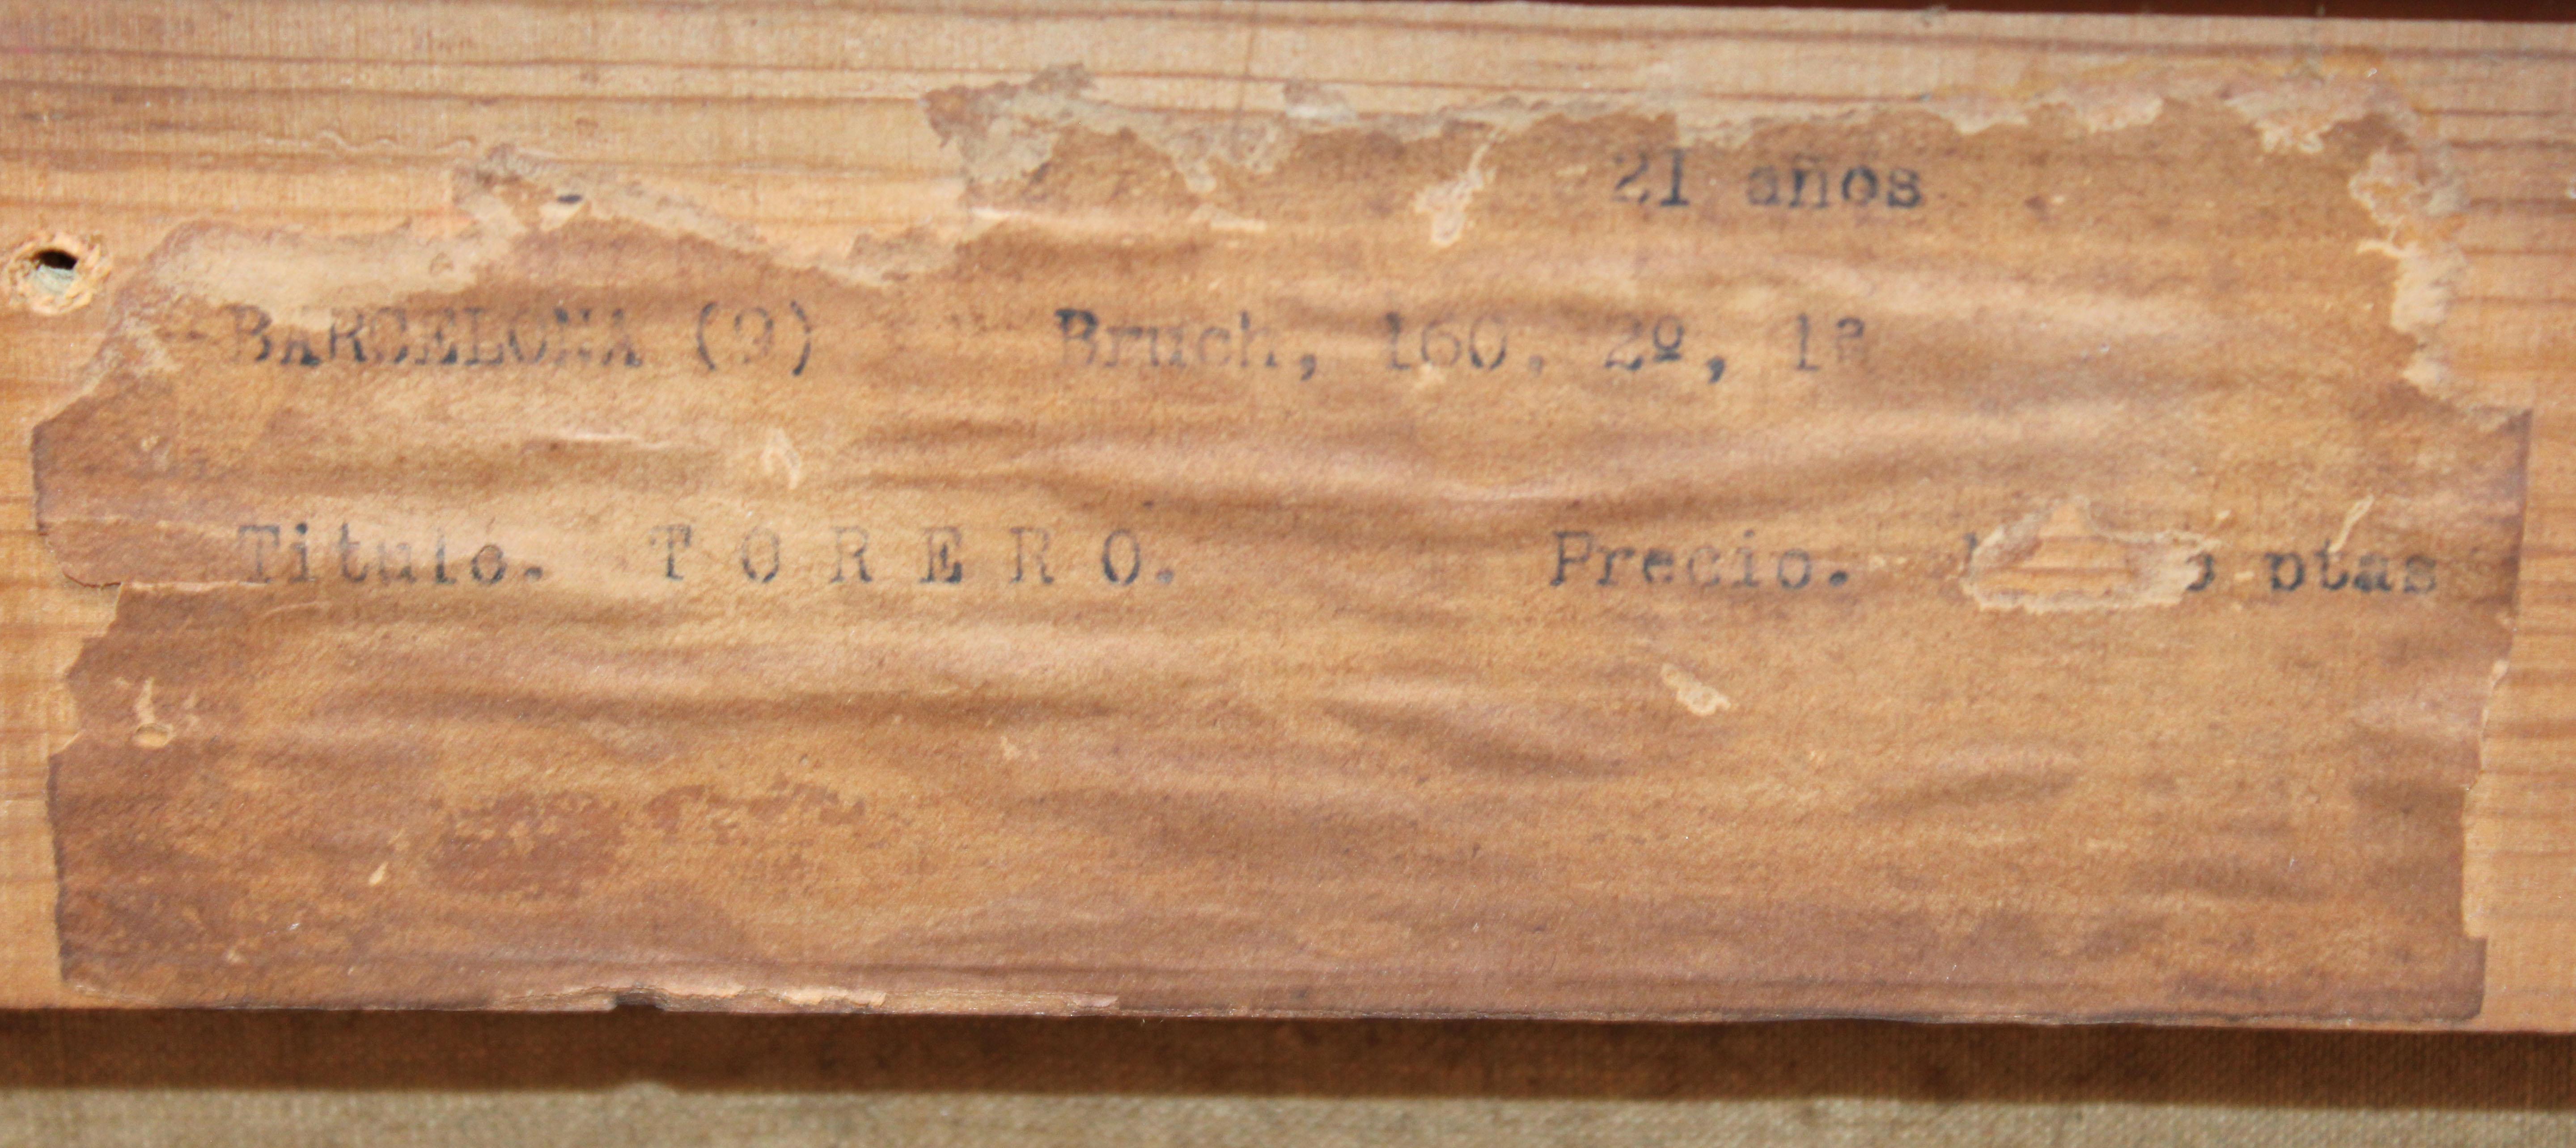 21 años
BARCELONA (9) Bruch, 160, 2º, 1ª
Titulo. T O R E R O. Precio. ptas